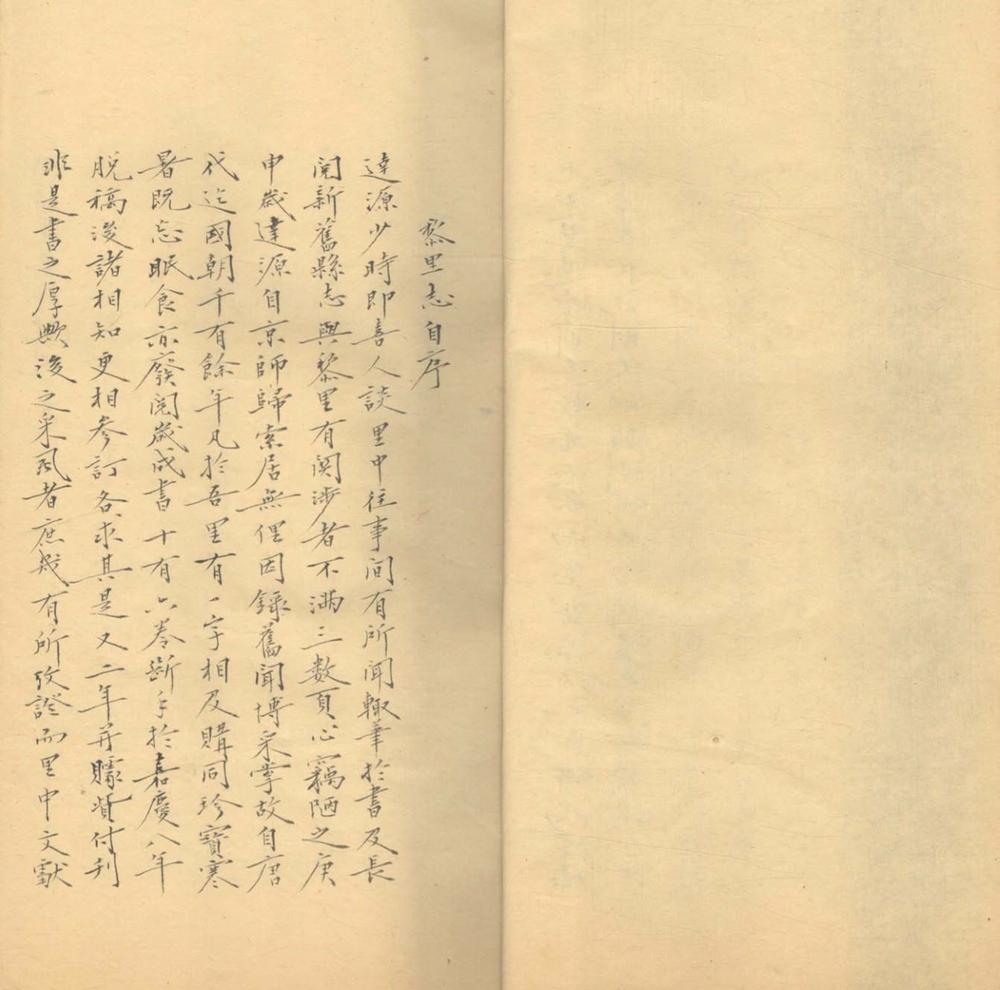 黎里志自序
達源少時即喜人談里中往事間有所聞輙筆於書及長
閱新舊縣志與黎里有関涉者不滿三數頁心竊陋之庚
申歲達源自京師歸索居無俚因録舊聞博采掌故自唐
代迄國朝千有餘年凡於吾里有一字相及購同珍寶寒
暑既忘眠食亦廢閱歲成書十有六卷斷手於嘉慶八年
脫稿後諸相知更相參訂各求其是又二年并醵貲付刋
非是書之厚歟後之采風者庶幾有所攷證而里中文獻